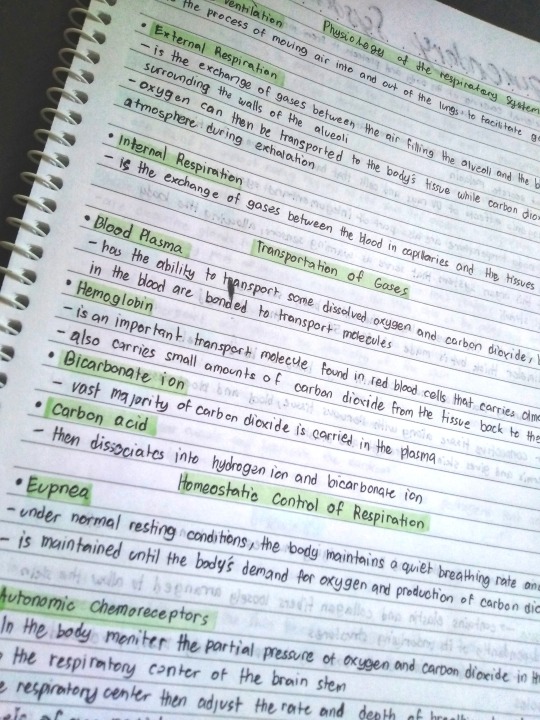 ventilation
Physiology of the respiratory System
the process of moving air into and out of the lungs to facilitate
• External Respiration
- is the exchange of gases between the air filling the alveoli and the b
surrounding the walls of the alveoli
- oxygen can then be transported to the body's tissue while carbon diox
atmosphere during exhalation
• Internal Respiration
- is the exchange of gases between the blood in capillaries and the tissues
Transportation of Gases
• Blood Plasma
- has the ability to transport some dissolved oxygen and carbon dioxide,
in the blood are bonded to transport molecules
• Hemoglobin
- is an important transport molecule found in red blood cells that carries almo
- also carries small amounts of carbon dioxide from the tissue back to the
• Bicarbonate ion
- vast majority of carbon dioxide is carried in the plasma
• Carbon acid
- then dissociates into hydrogen ion and bicarbonate ion
Homeostatic Control of Respiration
• Eupnea
- under normal resting conditions, the body maintains a quiet breathing rate and
- is maintained until the body's demand for oxygen and production of carbon dio
Autonomic Chemoreceptors
In the body moniter the partial pressure of oxygen and carbon dioxide in th
the respiratory center of the brain stem
respiratory center then adjust the rate and depth of